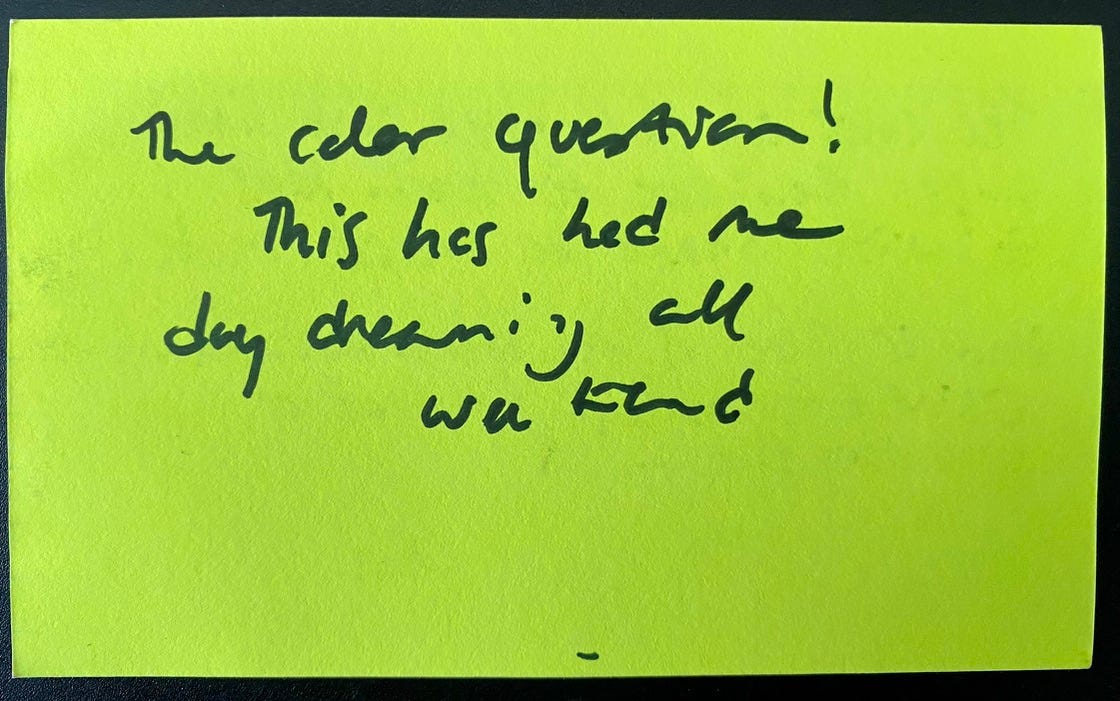 The color question!
This has had me
day dreaming all
weekend